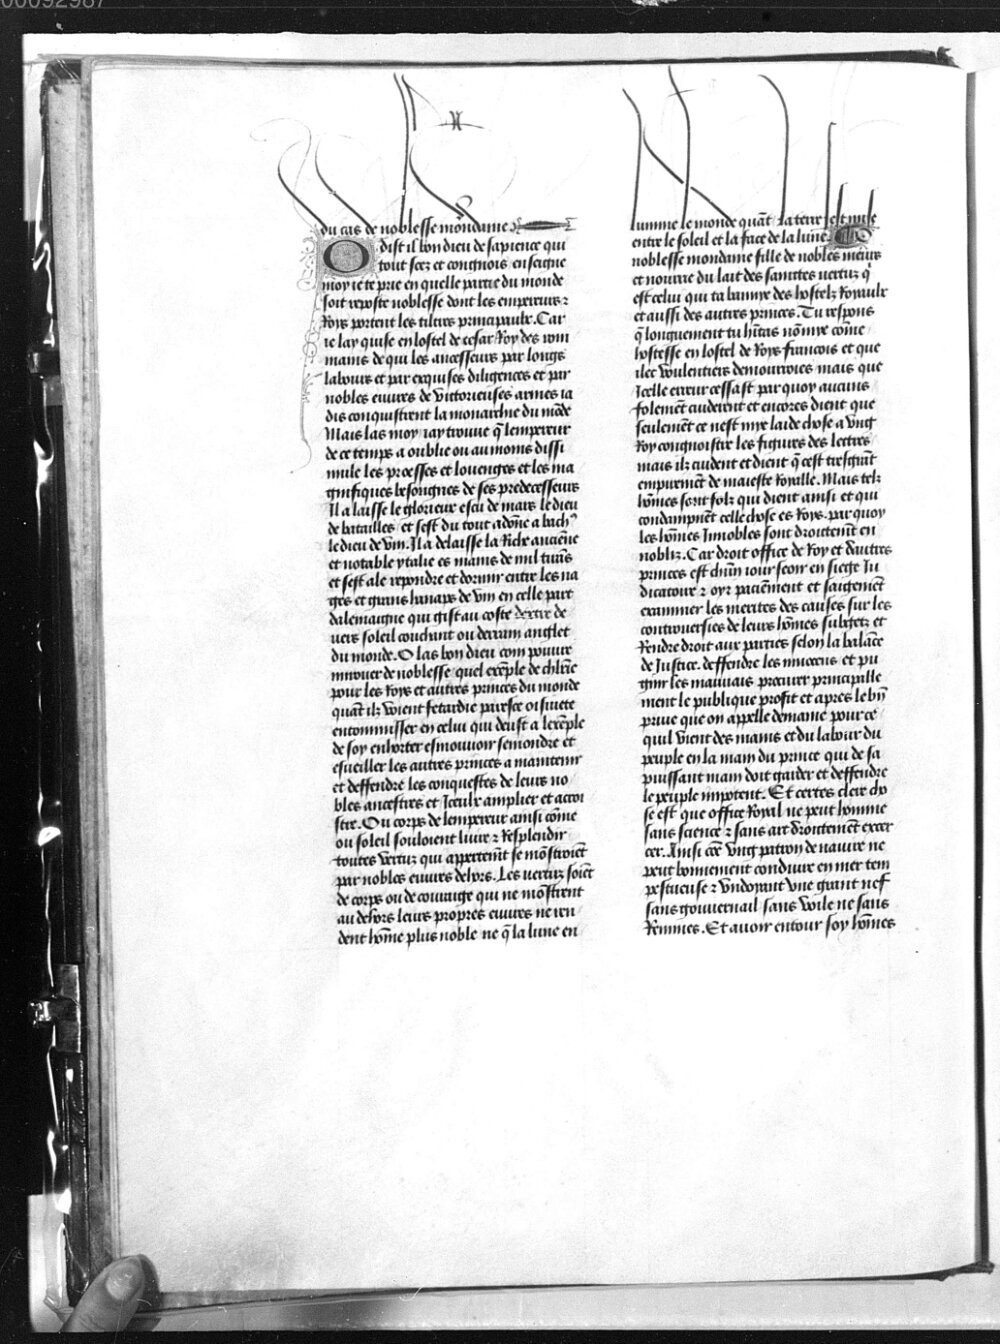 00092987
du cas de noblesse mõndaine
O dist il bon dieu de sapience qui
tout scez et congnois enseigne
moy ie te prie en quelle partie du monde
soit reposte noblesse dont les empereurs ⁊
Roys portent les tiltres principaulx. Car
ie lay quise en lostel de cesar Roy des rom
mains de qui les ancesseurs par longs
labours et par exquises diligences et par
nobles euures de victorieuses armes ia
dis conquistrent la monarchie du mõde
Mais las moy iay trouue q̃ lempereur
de ce temps a oublie ou au moins dissi
mule les proesses et louenges et les ma
gnifiques besongnes de ses predecesseurs
Il a laisse le glorieux escu de mars le dieu
de batailles et sest du tout adõne a bach9
le dieu de vin. Il a delaisse la Riche anciẽne
et notable ytalie es mains de mil tirãs
et sest ale repondre et dormir entre les na
ges et grans hanaps de vin en celle part
dalemaigne qui gist au coste dextre de
uers soleil couchant ou derrain anglet
du monde. O las bon dieu com pouure
mirouer de noblesse quel exẽple de chlr̃ie
pour les Roys et autres princes du monde
quãt ilz voient fetardie paresce oisiuete
entommisser en celui qui deust a lexẽple
de soy enhorter esmouuoir semondre et
esueiller les autres princes a maintenir
et deffendre les conquestes de leurs no
bles ancestres et Iceulx amplier et accroi
stre. Ou corps de lempereur ainsi cõme
ou soleil souloient luire ⁊ Resplendir
toutes vertuz qui appertenẽt se mõstroiẽt
par nobles euures dehors. Les vertuz soiẽt
de corps ou de couraige qui ne mõstrent
au dehors leurs propres euures ne ren
dent hõme plus noble ne q̃ la lune en
lumine le monde quãt la terre est mise
entre le soleil et la face de la lune.
noblesse mondaine fille de nobles meurs
et nourrie du lait des sainctes uertuz q̃
est celui qui ta bannye des hostelz Royaulx
et aussi des autres princes. Tu respons
q̃ longuement tu hĩtas nõmye cõme
hostesse en lostel de Roys francois et que
ilec voulentiers demourroies mais que
Icelle erreur cessast par quoy aucuns
folemẽt cuderent et encores dient que
seulemẽt ce nest mye laide chose a vng
Roy congnoistre les figures des lectres
mais ilz cudent et dient q̃ cest tresgrãt
empiremẽt de maieste Royalle. Mais telz
hõmes sont folz qui dient ainsi et qui
condampnẽt celle chose es Roys. par quoy
les hõmes Innobles sont droictemẽt en
nobliz. Car droit office de Roy et dautres
princes est chũn iour seoir en siege Iu
dicatoire ⁊ oyr paciẽment et saigemẽt
examiner les merites des causes sur les
controuersies de leurs hõmes subgetz et
Rendre droit aux parties selon la balãce
de Iustice. deffendre les innocens et pu
gnir les mauuais procurer principalle
ment le publique profit et apres le bñ
priue que on appelle demaine pour ce
quil vient des mains et du labour du
peuple en la main du prince qui de sa
puissant main doit garder et deffendre
le peuple impotent. Et certes clere cho
se est que office Royal ne peut homme
sans science ⁊ sans art droictemẽt excer
cer. Ainsi cõe vng patron de nauire ne
peut bonnement conduire en mer tem
pestueuse ⁊ vndoyant vne grant nef
sans gouuernail sans voile ne sans
Rennes. Et auoir entour soy hõmes